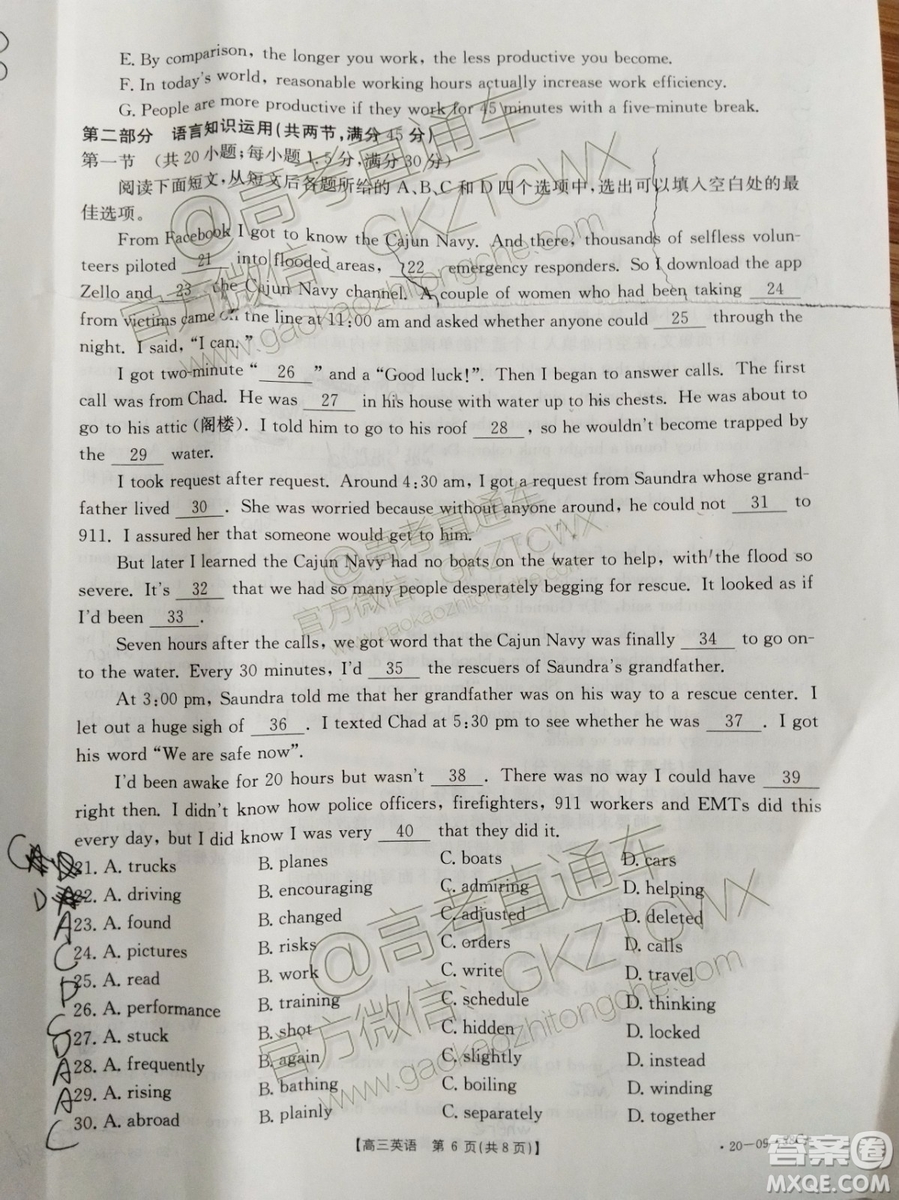 E. By comparison, the longer you work, the less productive you become.
F. In today's world, reasonable working hours actually increase work efficiency.
G. People are more productive if they work for 45 minutes with a five-minute break.
第二部分 语言知识运用(共两节,满分45分)
第一节 (共20小题;每小题1.5分,满分30分)
阅读下面短文,从短文后各题所给的A、B、C和D四个选项中,选出可以填入空白处的最
佳选项。
From Facebook I got to know the Cajun Navy. And there, thousands of selfless volun-
teers piloted 21 into flooded areas, 22 emergency responders. So I download the app
Zello and 23 the Cajun Navy channel. A couple of women who had been taking 24
from victims came on the line at 11:00 am and asked whether anyone could 25 through the
night. I said, "I can."
I got two-minute " 26 " and a "Good luck!". Then I began to answer calls. The first
call was from Chad. He was 27 in his house with water up to his chests. He was about to
go to his attic (阁楼). I told him to go to his roof 28 , so he wouldn't become trapped by
the 29 water.
I took request after request. Around 4:30 am, I got a request from Saundra whose grand-
father lived 30 . She was worried because without anyone around, he could not 31 to
911. I assured her that someone would get to him.
But later I learned the Cajun Navy had no boats on the water to help, with the flood so
severe. It's 32 that we had so many people desperately begging for rescue. It looked as if
I'd been 33 .
Seven hours after the calls, we got word that the Cajun Navy was finally 34 to go on-
to the water. Every 30 minutes, I'd 35 the rescuers of Saundra's grandfather.
At 3:00 pm, Saundra told me that her grandfather was on his way to a rescue center. I
let out a huge sigh of 36 . I texted Chad at 5:30 pm to see whether he was 37 . I got
his word "We are safe now".
I'd been awake for 20 hours but wasn't 38 . There was no way I could have 39
right then. I didn't know how police officers, firefighters, 911 workers and EMTs did this
every day, but I did know I was very 40 that they did it.
C 21. A. trucks B. planes C. boats D. cars
D 22. A. driving B. encouraging C. admiring D. helping
A 23. A. found B. changed C. adjusted D. deleted
C 24. A. pictures B. risks C. orders D. calls
D 25. A. read B. work C. write D. travel
26. A. performance B. training C. schedule D. thinking
C 27. A. stuck B. shot C. hidden D. locked
D 28. A. frequently B. again C. slightly D. instead
A 29. A. rising B. bathing C. boiling D. winding
A 30. A. abroad B. plainly C. separately D. together
C
【高三英语 第6页(共8页)】
·20-09
@高考直通车
官方微信:GKZTCWX
www.gaokaozhitongche.com
@高考直通车
官方微信:GKZTCWX
www.gaokaozhitongche.com
@高考直通车
官方微信:GKZTCWX
www.gaokaozhitongche.com
答案圈
MXQE.COM